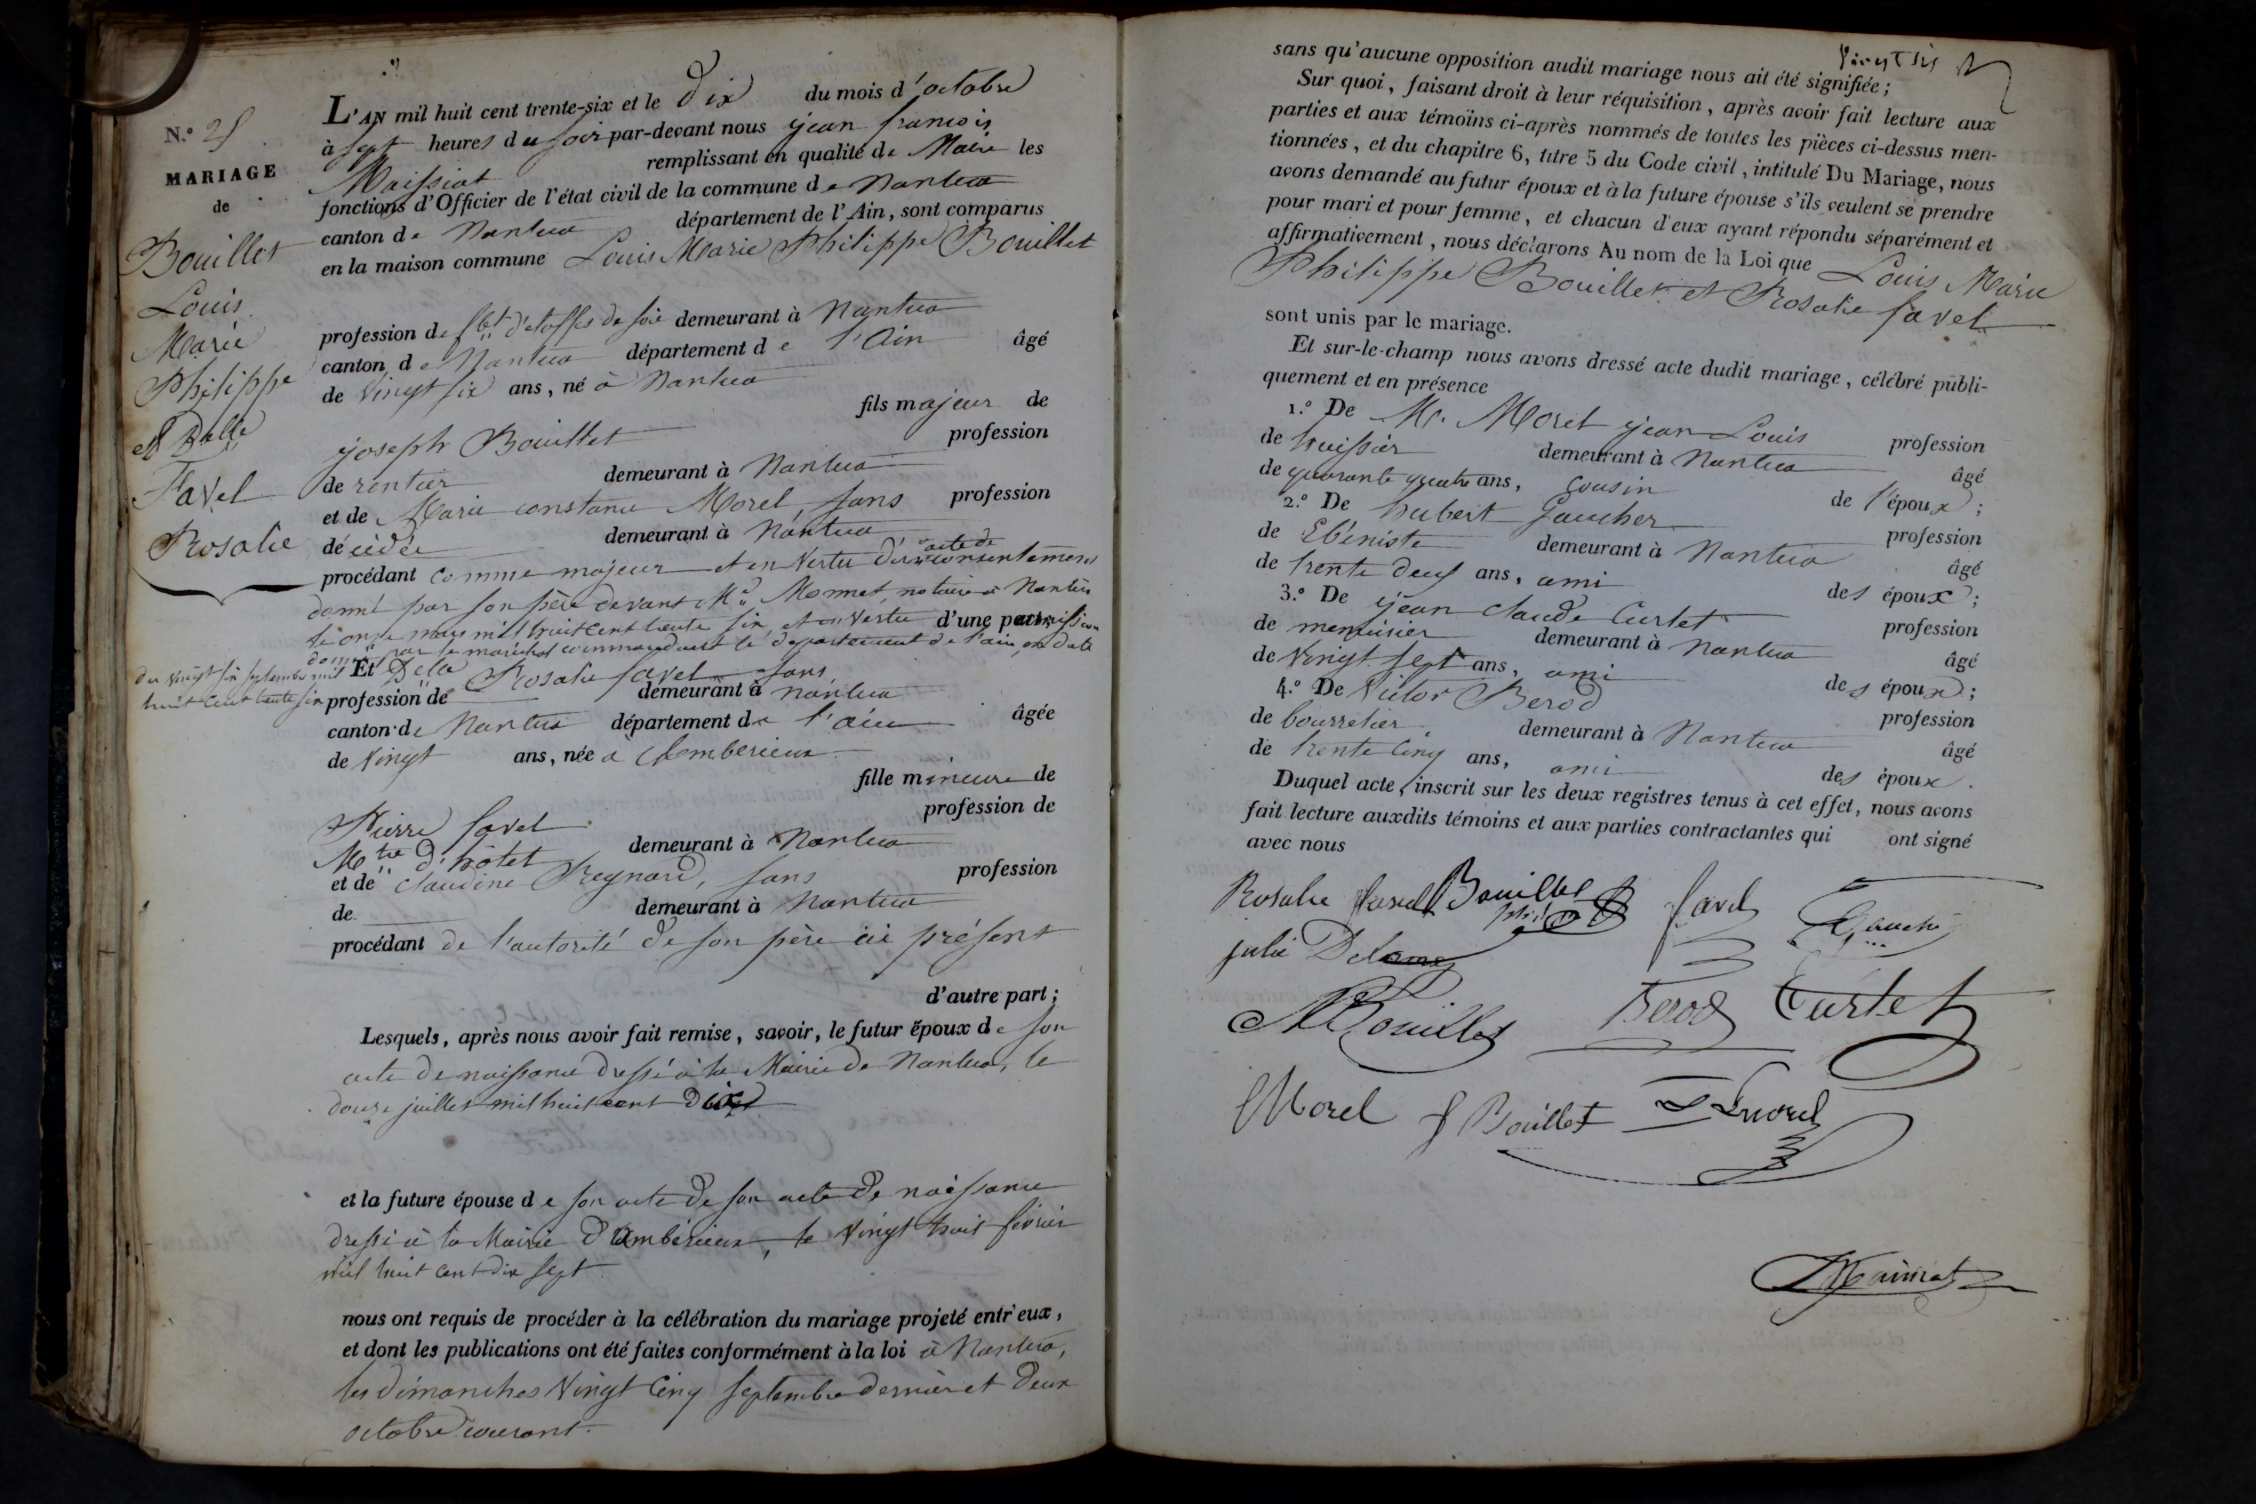 N.º 25
MARIAGE
de
Bouillet
Louis
Marie
Philippe
et Delle
Favel
Rosalie
L'AN mil huit cent trente-six et le dix du mois d'octobre
à sept heures du soir par-devant nous jean francois
Maissiat remplissant en qualité de Maire les
fonctions d'Officier de l'état civil de la commune de Nantua
canton de Nantua département de l'Ain, sont comparus
en la maison commune Louis Marie Philippe Bouillet
profession de fbt d'étoffes de soie demeurant à Nantua
canton de Nantua département de l'Ain âgé
de vingt six ans, né à Nantua
fils majeur de
joseph Bouillet profession
de rentier demeurant à Nantua
et de Marie constance Morel, sans profession
décédée demeurant à Nantua
procédant comme majeur et en vertu d'un acte de consentement
donné par son père devant Me Monnet notaire à Nantua
le onze mars mil huit cent trente six et en vertu d'une part; permission
donnée par le maréchal commandant le département de l'ain, en date
du vingt six septembre mil
huit cent trente six
Et Delle Rosalie favel sans
profession de demeurant à nantua
canton de Nantua département de l'ain âgée
de vingt ans, née à Chamberieux
fille mineure de
Pierre favel profession de
Mtre d'hôtel demeurant à Nantua
et de claudine Reynard, sans profession
de demeurant à Nantua
procédant de l'autorité de son père ici présent
d'autre part;
Lesquels, après nous avoir fait remise, savoir, le futur époux de son
acte de naissance dressé à la Mairie de Nantua, le
douze juillet mil huit cent dix
et la future épouse de son acte de son acte de naissance
dressé à la Mairie d'ambérieux, le vingt huit février
mil huit cent dix sept
nous ont requis de procéder à la célébration du mariage projeté entr'eux,
et dont les publications ont été faites conformément à la loi à Nantua,
les dimanches vingt cinq septembre dernier et deux
octobre courant.
vingt six
sans qu'aucune opposition audit mariage nous ait été signifiée;
Sur quoi, faisant droit à leur réquisition, après avoir fait lecture aux
parties et aux témoins ci-après nommés de toutes les pièces ci-dessus men-
tionnées, et du chapitre 6, titre 5 du Code civil, intitulé Du Mariage, nous
avons demandé au futur époux et à la future épouse s'ils veulent se prendre
pour mari et pour femme, et chacun d'eux ayant répondu séparément et
affirmativement, nous déclarons Au nom de la Loi que Louis Marie
Philippe Bouillet et Rosalie favel
sont unis par le mariage.
Et sur-le-champ nous avons dressé acte dudit mariage, célébré publi-
quement et en présence
1.º De Mr. Morel jean Louis profession
de huissier demeurant à Nantua âgé
de quarante quatre ans, cousin de l'époux;
2.º De hubert Gaucher profession
de Ebéniste demeurant à Nantua âgé
de trente deux ans, ami des époux;
3.º De jean claude Curtet profession
de menuisier demeurant à Nantua âgé
de vingt sept ans, ami des époux;
4.º De victor Berod profession
de bourrelier demeurant à Nantua âgé
de trente cinq ans, ami des époux.
Duquel acte, inscrit sur les deux registres tenus à cet effet, nous avons
fait lecture auxdits témoins et aux parties contractantes qui ont signé
avec nous
Rosalie favel Bouillet favel Gaucher
julie
Bouillet Berod Curtet
Morel Bouillet Morel
Maissiat